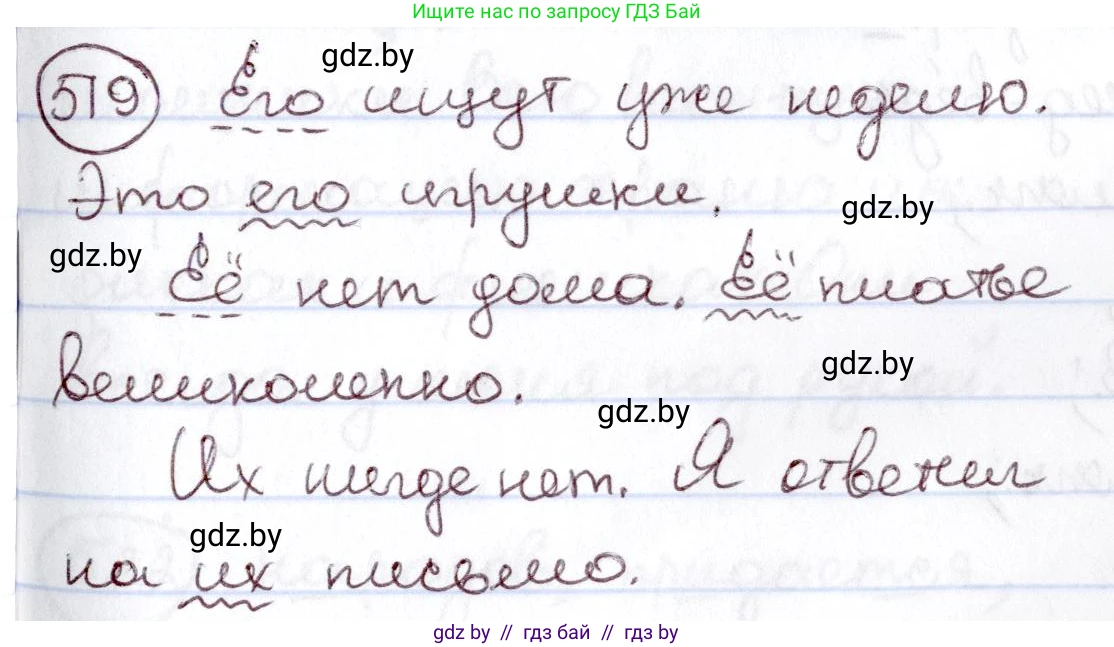 Ищите нас по запросу ГДЗ Бай
gdz.by
519 Его ищут уже неделю.
Это его игрушки.
gdz.by
gdz.by
Её нет дома. Её платье
gdz.by
великолепно.
gdz.by
Их нигде нет. Я ответил
gdz.by
на их письмо.
gdz by // гдз бай // гдз by